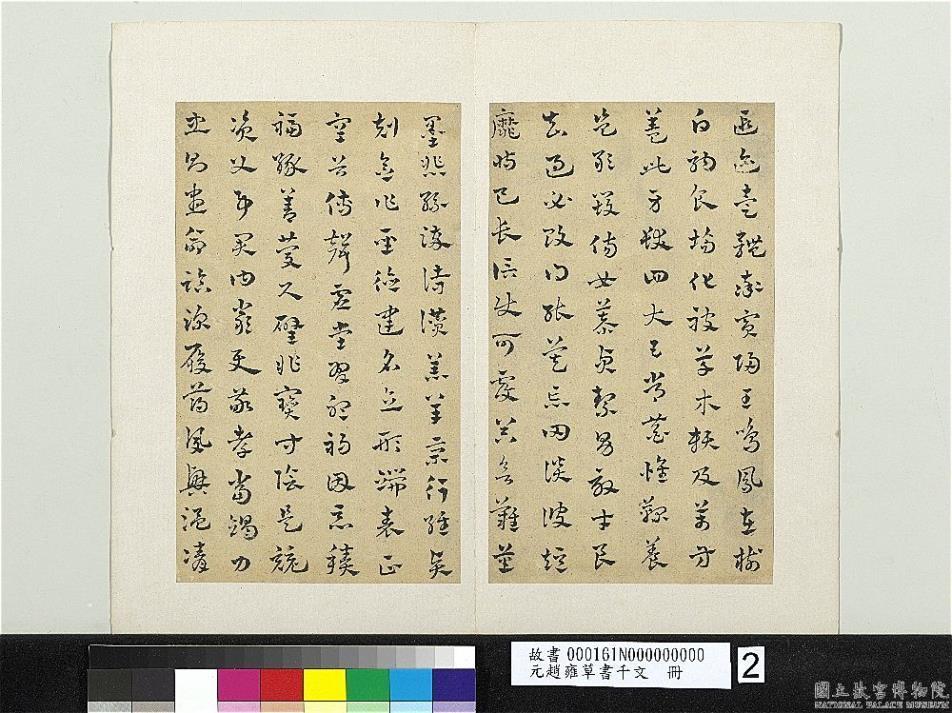 遐邇壹體率賓歸王鳴鳳在樹
白駒食場化被草木賴及萬方
蓋此身髮四大五常恭惟鞠養
豈敢毀傷女慕貞絜男效才良
知過必改得能莫忘罔談彼短
靡恃己長信使可覆器欲難量
墨悲絲染詩讚羔羊景行維賢
剋念作聖德建名立形端表正
空谷傳聲虛堂習聽禍因惡積
福緣善慶尺璧非寶寸陰是競
資父事君曰嚴與敬孝當竭力
忠則盡命臨深履薄夙興溫凊
故書 000161N000000000
元趙雍草書千文 冊
2
國立故宮博物院
NATIONAL PALACE MUSEUM